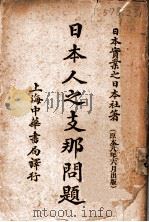 日本實業之日本社著
日本人之支那問題
上海中華書局譯行